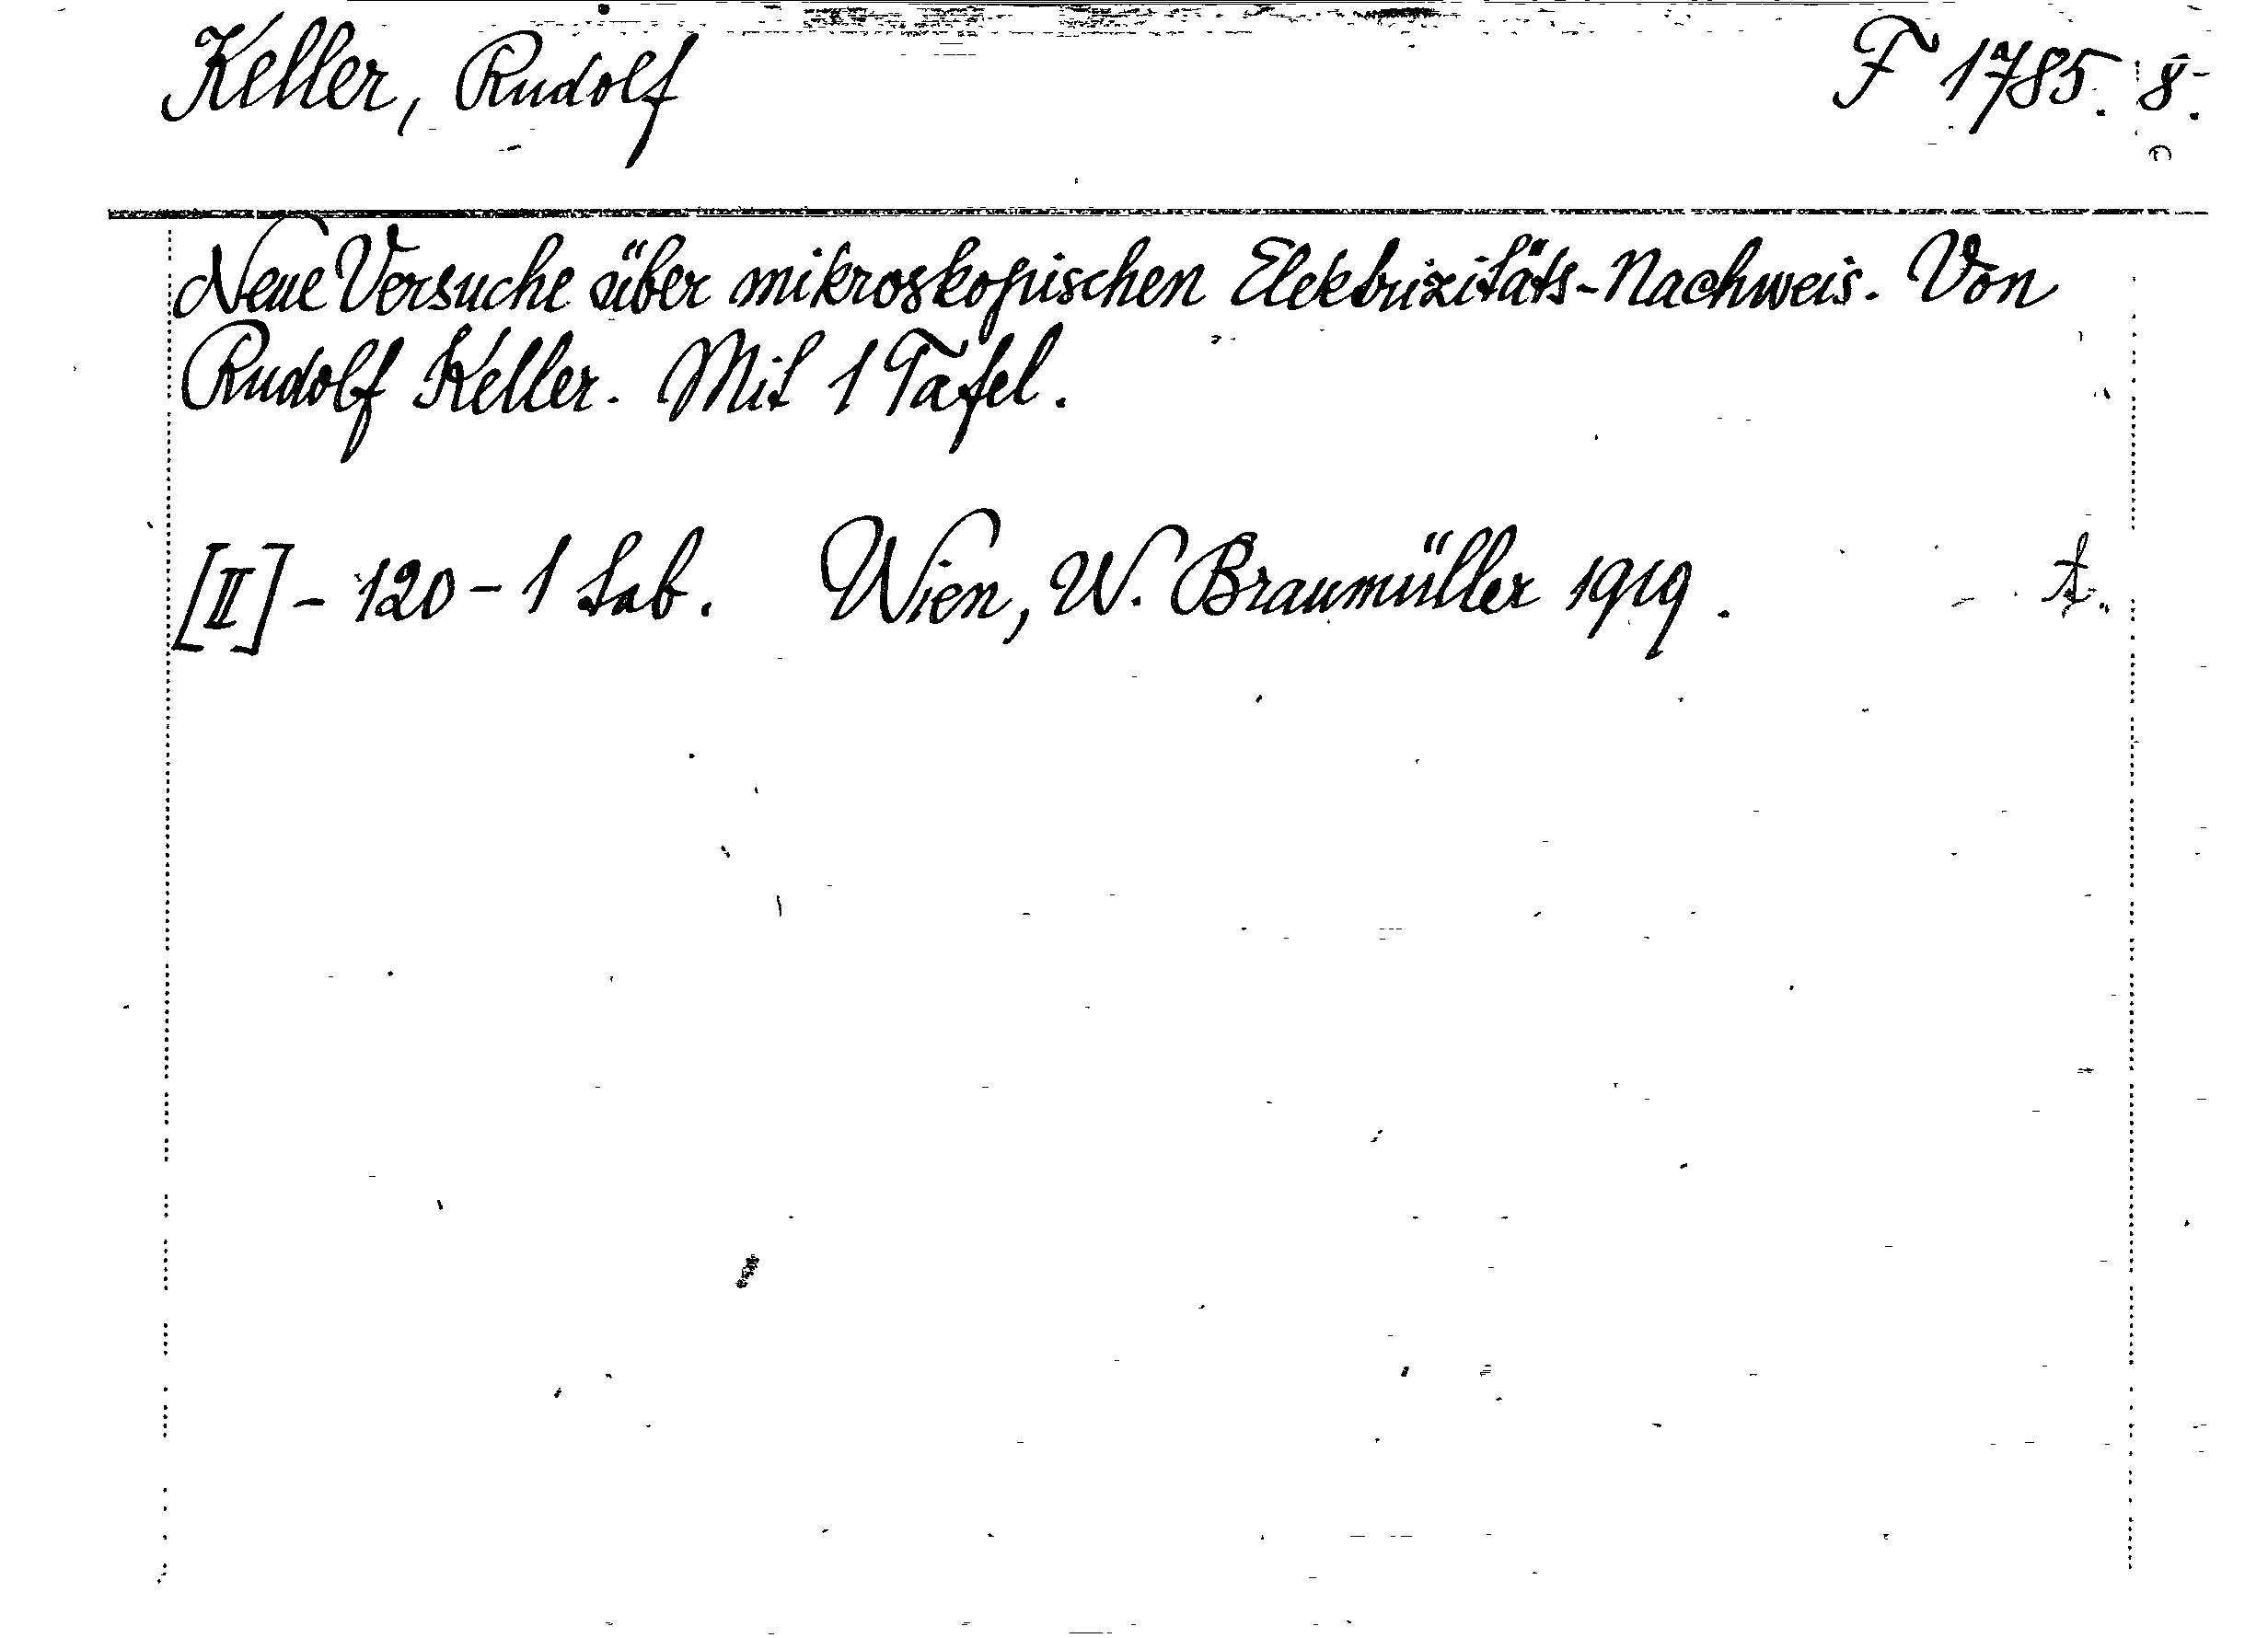 Keller, Rudolf F 1785. 8.
Neue Versuche über mikroskopischen Elektrizitäts-Nachweis. Von
Rudolf Keller. Mit 1 Tafel.
[II] - 120 - 1 tab. Wien, W. Braumüller 1919.